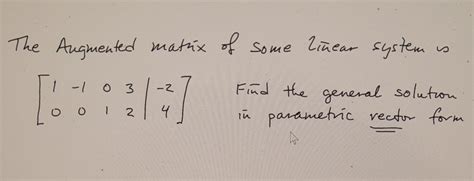 The Augmented matrix of some linear system is
[ 1 -1 0 3 | -2 ]
[ 0 0 1 2 | 4 ]
Find the general solution
in parametric vector form